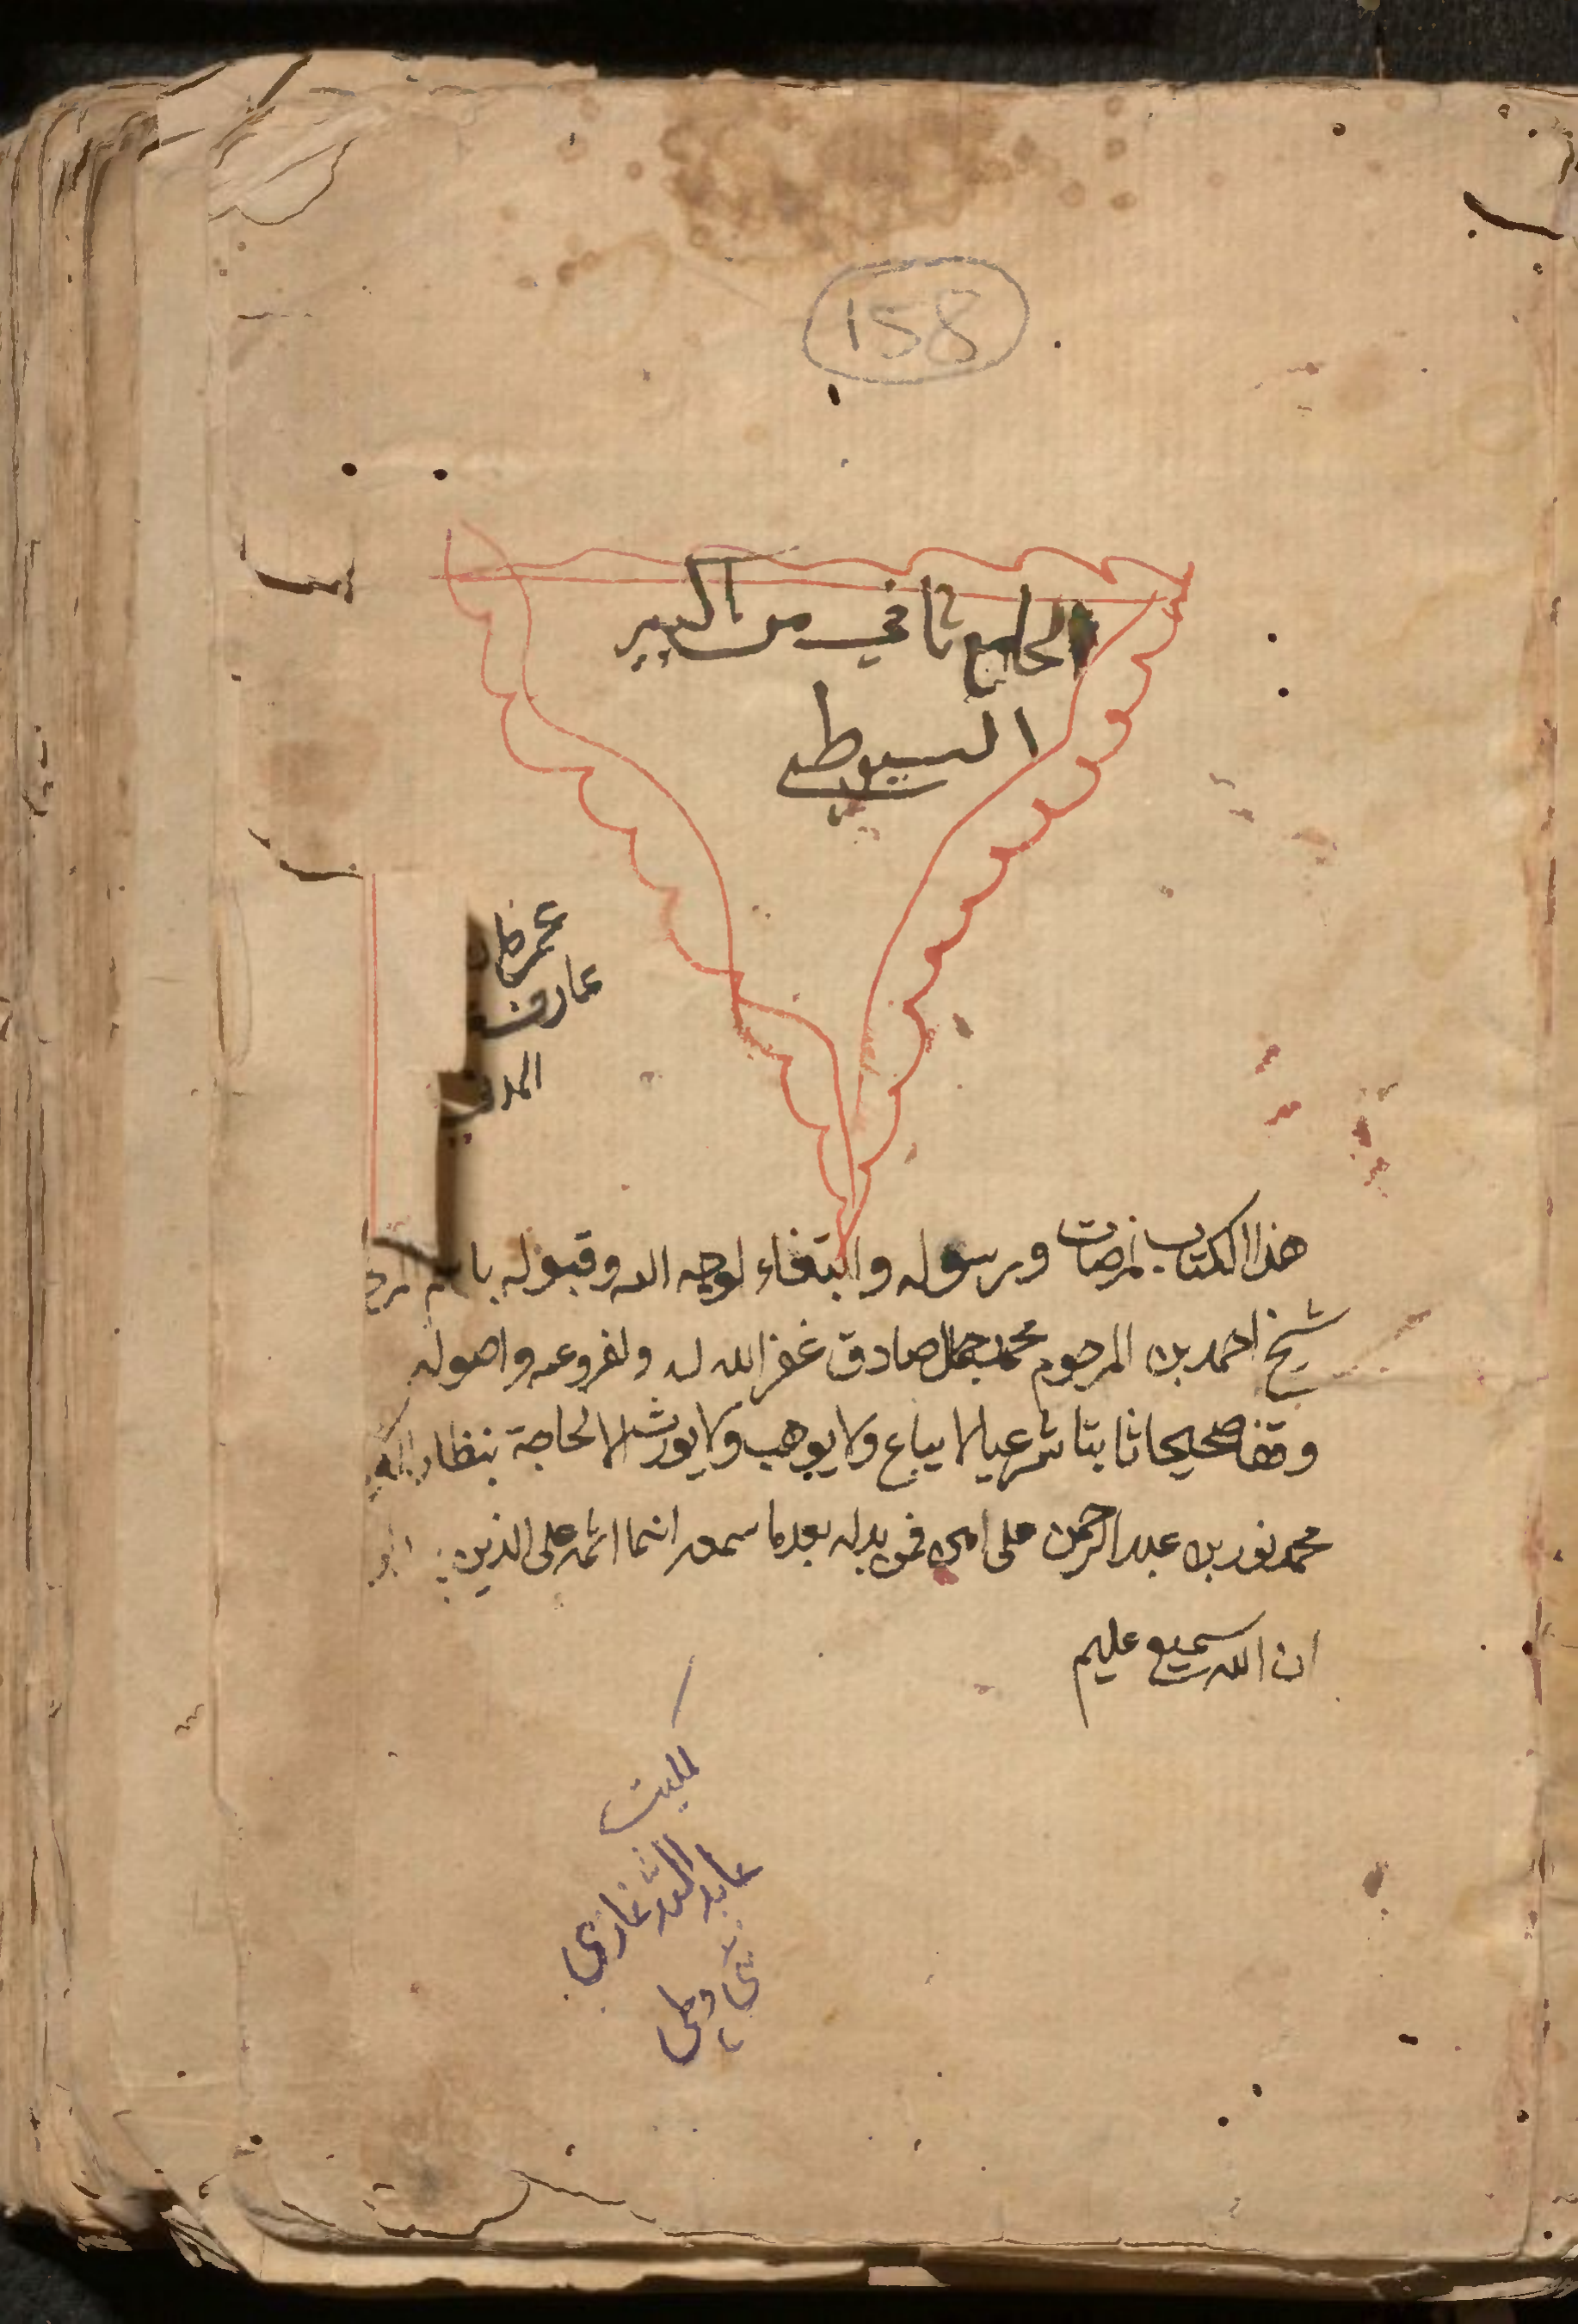 158
الجامع ثاني من الكبير
السيوطي
عمر
عارف
هذا الكتاب لمرضات ورسوله وابتغاء لوجه الله وقبوله
شيخ احمد بن المرحوم محمد جمال صادق غفر الله له ولفروعه واصوله
وقفا صحيحا ثابتا شرعيا لا يباع ولا يوهب ولا يورث الا لحاجة بنظار
محمد نور بن عبد الرحمن على فمن بدله بعدما سمعه انما اثمه على الذين
ان الله سميع عليم
غازي